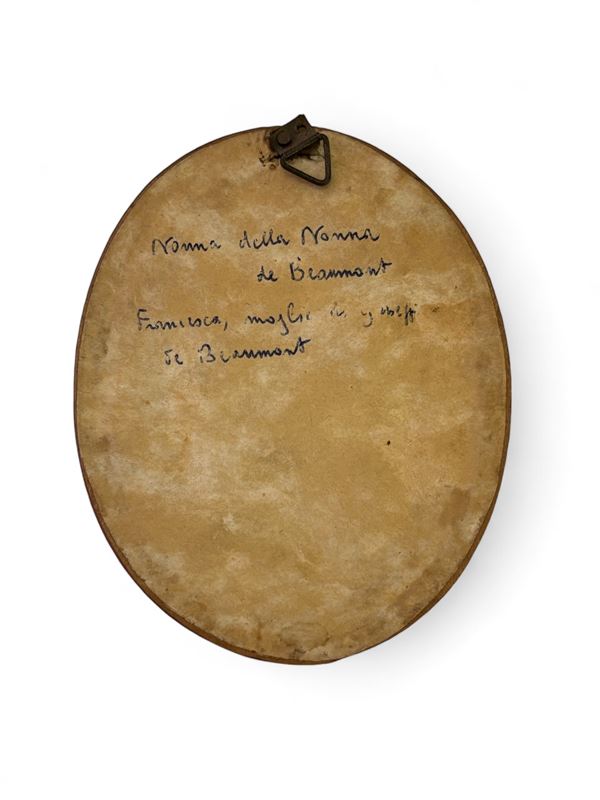 Nonna della Nonna
de Beaumont
Francesca, moglie di
de Beaumont